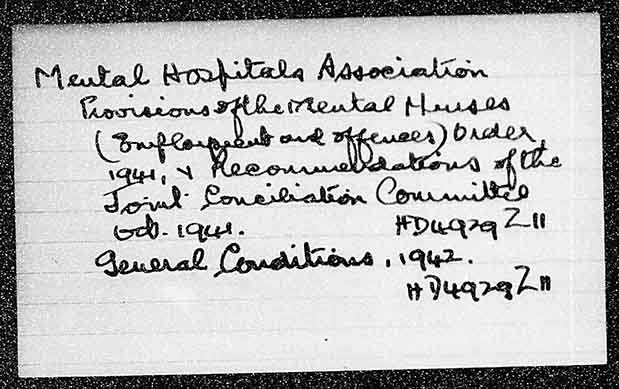 Mental Hospitals Association
Provisions of the Mental Nurses
(Employment and offences) Order,
1941, & Recommendations of the
Joint Conciliation Committee
Oct. 1941. HD4929 Z11
General Conditions, 1942.
HD4929 Z11